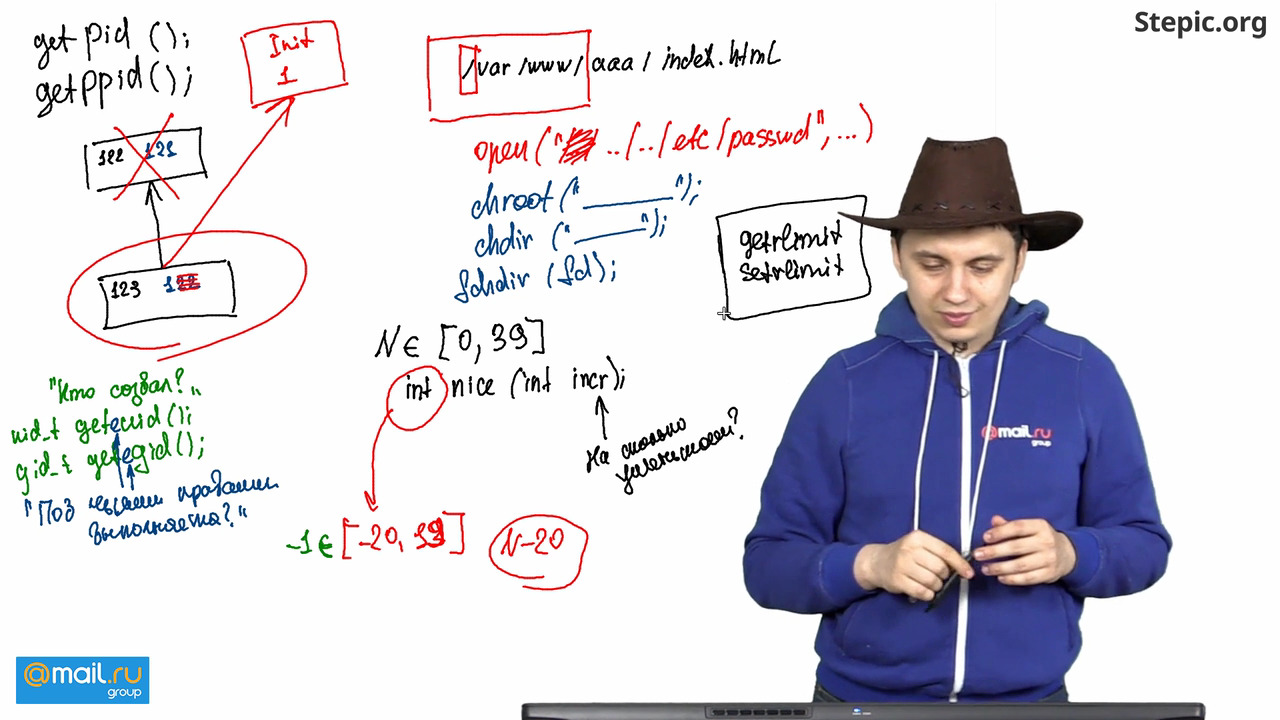 Stepic.org
getpid ();
getppid();
Init
1
122 121
123 122
"Кто создал?"
uid_t geteuid();
gid_t getegid();
"Под чьими правами
выполняется?"
/var/www/aaa/index.html
open(" ../../etc/passwd", ...)
chroot ("______");
chdir ("______");
fchdir (fd);
getrlimit
setrlimit
N∈ [0, 39]
int nice (int incr);
На сколько
-1∈ [-20, 19]
N-20
@mail.ru
group
@mail.ru
group